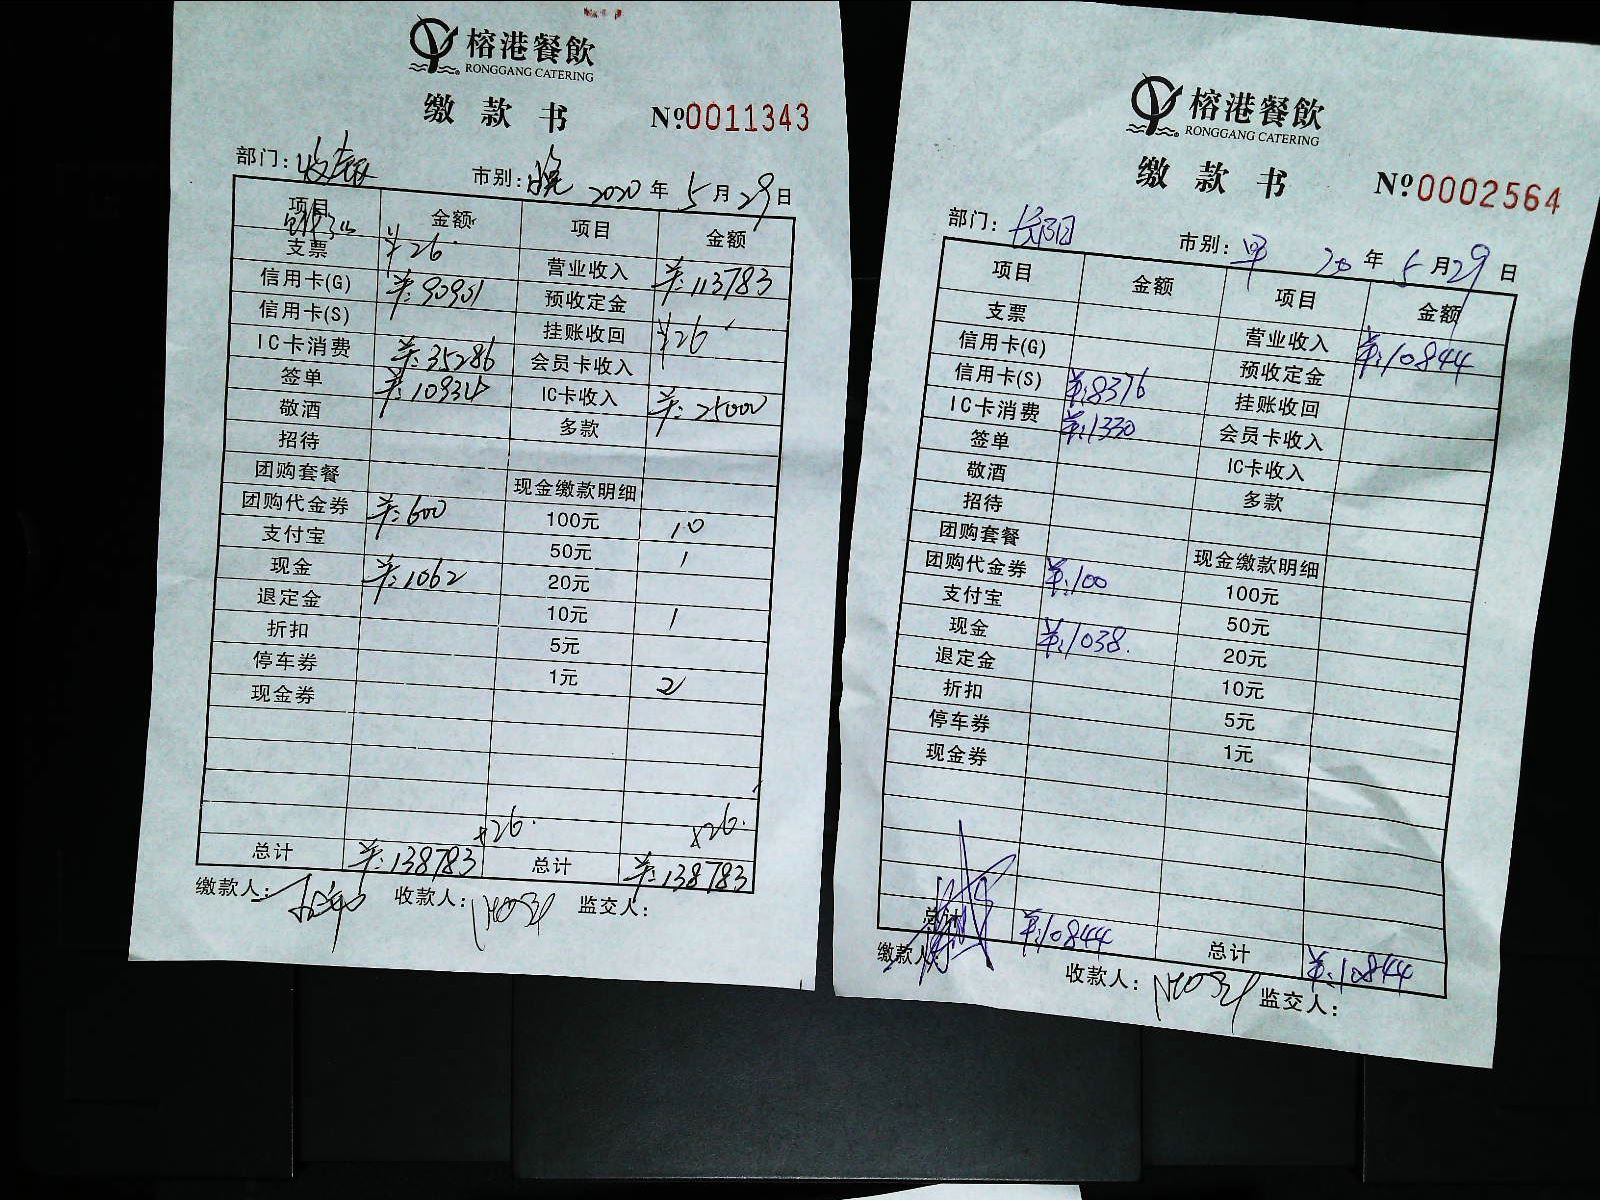 榕港餐飲
RONGGANG CATERING
缴款书 №0011343
部门: 市别:晚 2020年5月29日
项目 金额 项目 金额
支票 ¥26 营业收入 ¥:113783
信用卡(G) ¥:90901 预收定金
信用卡(S) 挂账收回 ¥26
IC卡消费 ¥:35286 会员卡收入
签单 ¥:10934 IC卡收入 ¥:25000
敬酒 多款
招待
团购套餐 现金缴款明细
团购代金券 ¥:600 100元 10
支付宝 50元 1
现金 ¥:1062 20元
退定金 10元 1
折扣 5元
停车券 1元 2
现金券
+26. +26.
总计 ¥:138783 总计 ¥:138783
缴款人: 收款人: 监交人:
榕港餐飲
RONGGANG CATERING
缴款书 №0002564
部门: 市别:早 20年5月29日
项目 金额 项目 金额
支票 营业收入 ¥:10844
信用卡(G) 预收定金
信用卡(S) ¥:8376 挂账收回
IC卡消费 ¥:1330 会员卡收入
签单 IC卡收入
敬酒 多款
招待
团购套餐 现金缴款明细
团购代金券 ¥:100 100元
支付宝 50元
现金 ¥:1038. 20元
退定金 10元
折扣 5元
停车券 1元
现金券
总计 ¥:10844 总计 ¥:10844
缴款人: 收款人: 监交人: